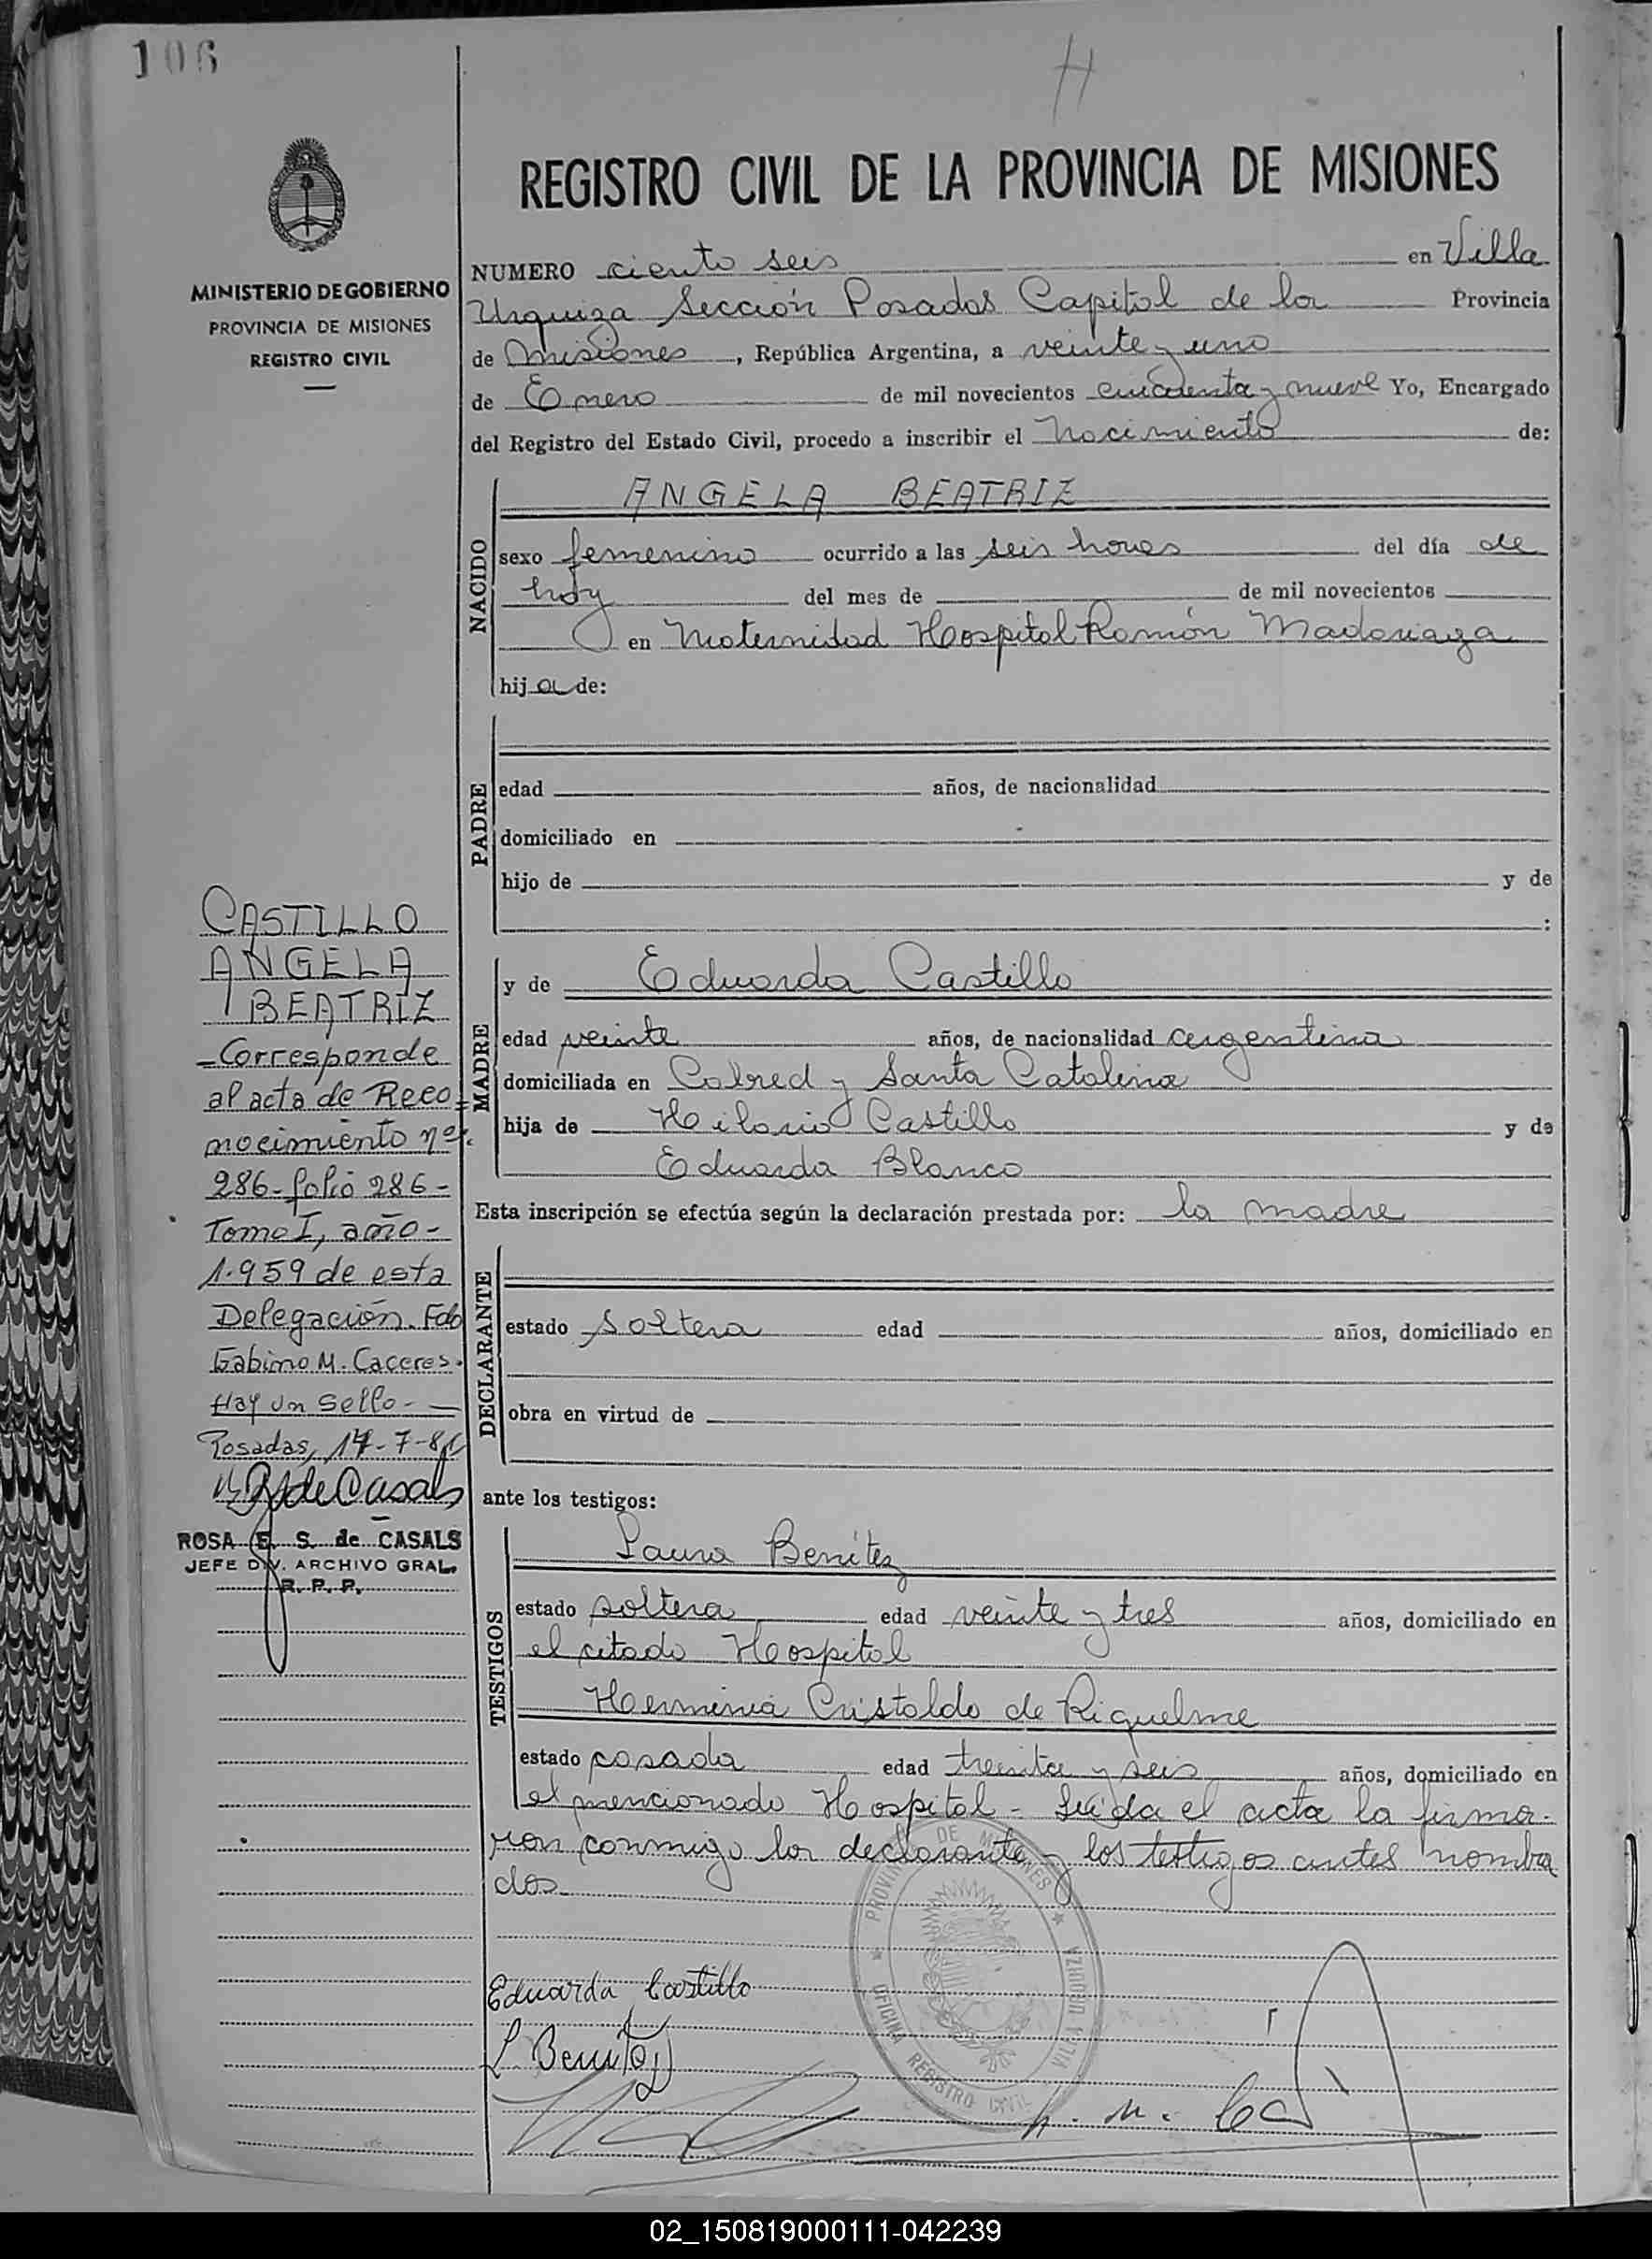 106
H
REGISTRO CIVIL DE LA PROVINCIA DE MISIONES
MINISTERIO DE GOBIERNO
PROVINCIA DE MISIONES
REGISTRO CIVIL
NUMERO ciento seis en Villa
Urquiza Sección Posadas Capital de la Provincia
de Misiones, República Argentina, a veinte y uno
de Enero de mil novecientos cincuenta y nueve Yo, Encargado
del Registro del Estado Civil, procedo a inscribir el Nacimiento de:
NACIDO
ANGELA BEATRIZ
sexo femenino ocurrido a las seis horas del día de
hoy del mes de de mil novecientos
en Maternidad Hospital Ramón Madariaga
hija de:
PADRE
edad años, de nacionalidad
domiciliado en
hijo de y de
:
MADRE
y de Eduarda Castillo
edad veinte años, de nacionalidad argentina
domiciliada en Cabred y Santa Catalina
hija de Hilario Castillo y de
Eduarda Blanco
Esta inscripción se efectúa según la declaración prestada por: la madre
DECLARANTE
estado soltera edad años, domiciliado en
obra en virtud de
ante los testigos:
TESTIGOS
Laura Benítez
estado soltera edad veinte y tres años, domiciliado en
el citado Hospital
Herminia Cristaldo de Riquelme
estado casada edad treinta y seis años, domiciliado en
el mencionado Hospital - Leída el acta la firma-
ron conmigo la declarante y los testigos antes nombra
dos
CASTILLO
ANGELA
BEATRIZ
- Corresponde
al acta de Reco=
nocimiento nº
286- folio 286-
Tomo I, año -
1.959 de esta
Delegación. Fdo
Gabino M. Caceres.
Hay un sello -
Posadas, 14-7-8
R de Casals
ROSA E. S. de CASALS
JEFE DIV. ARCHIVO GRAL.
R. P. P.
PROVINCIA DE MISIONES
OFICINA REGISTRO CIVIL
VILLA URQUIZA
Eduarda Castillo
L. Benítez
02_150819000111-042239